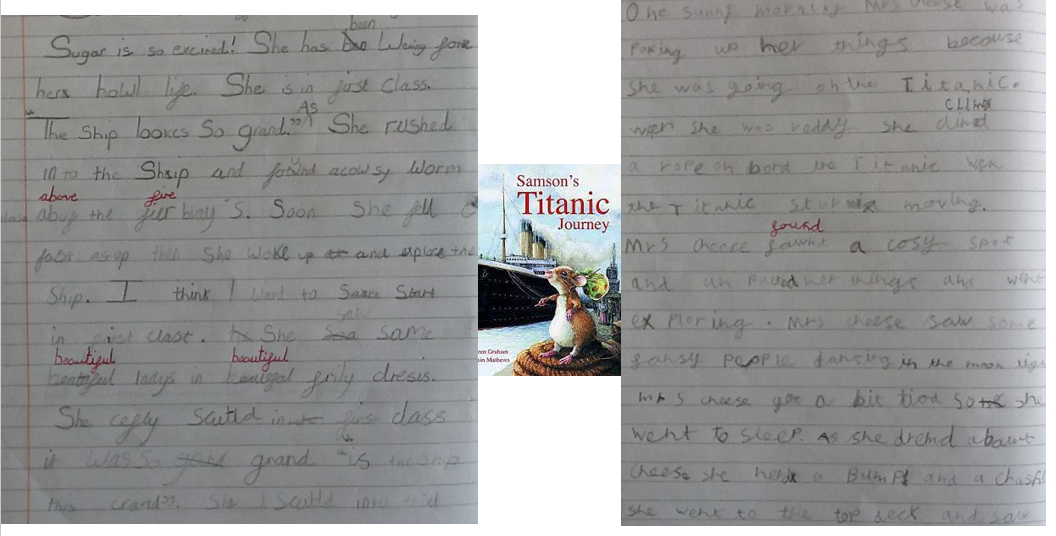 been
Sugar is so excined! She has Weing fore
hers howl lije. She is in first Class.
As
The Ship lookes So grand." She rushed
into the Ship and found acowsy Worm
above five
abuy the fier blay's. Soon She fell
fast asep then She Woke up and explore the
Ship. I think I want to Start
saw
in first clast. She same
beautiful beautiful
ladys in frily dresis.
She cefly Scutld in first class
it was So grand "is the ship
this grand". She Scutld into
Samson's
Titanic
Journey
ren Graham
in Mathews
One sunny morning Mrs cheese was
Paking up her things becouse
she was going on the Titanic.
climed
when she was reddy she
a rope on bord the Titanic wen
the Titanic moving.
found
Mrs cheese a cosy spot
and un paced her things and went
exploring. Mrs cheese saw some
fansy people dansing in the moon
Mrs cheese got a bit tiod So she
went to sleep. As she dremd abawt
cheese she herd a BumP and a chash
she went to the top deck and saw